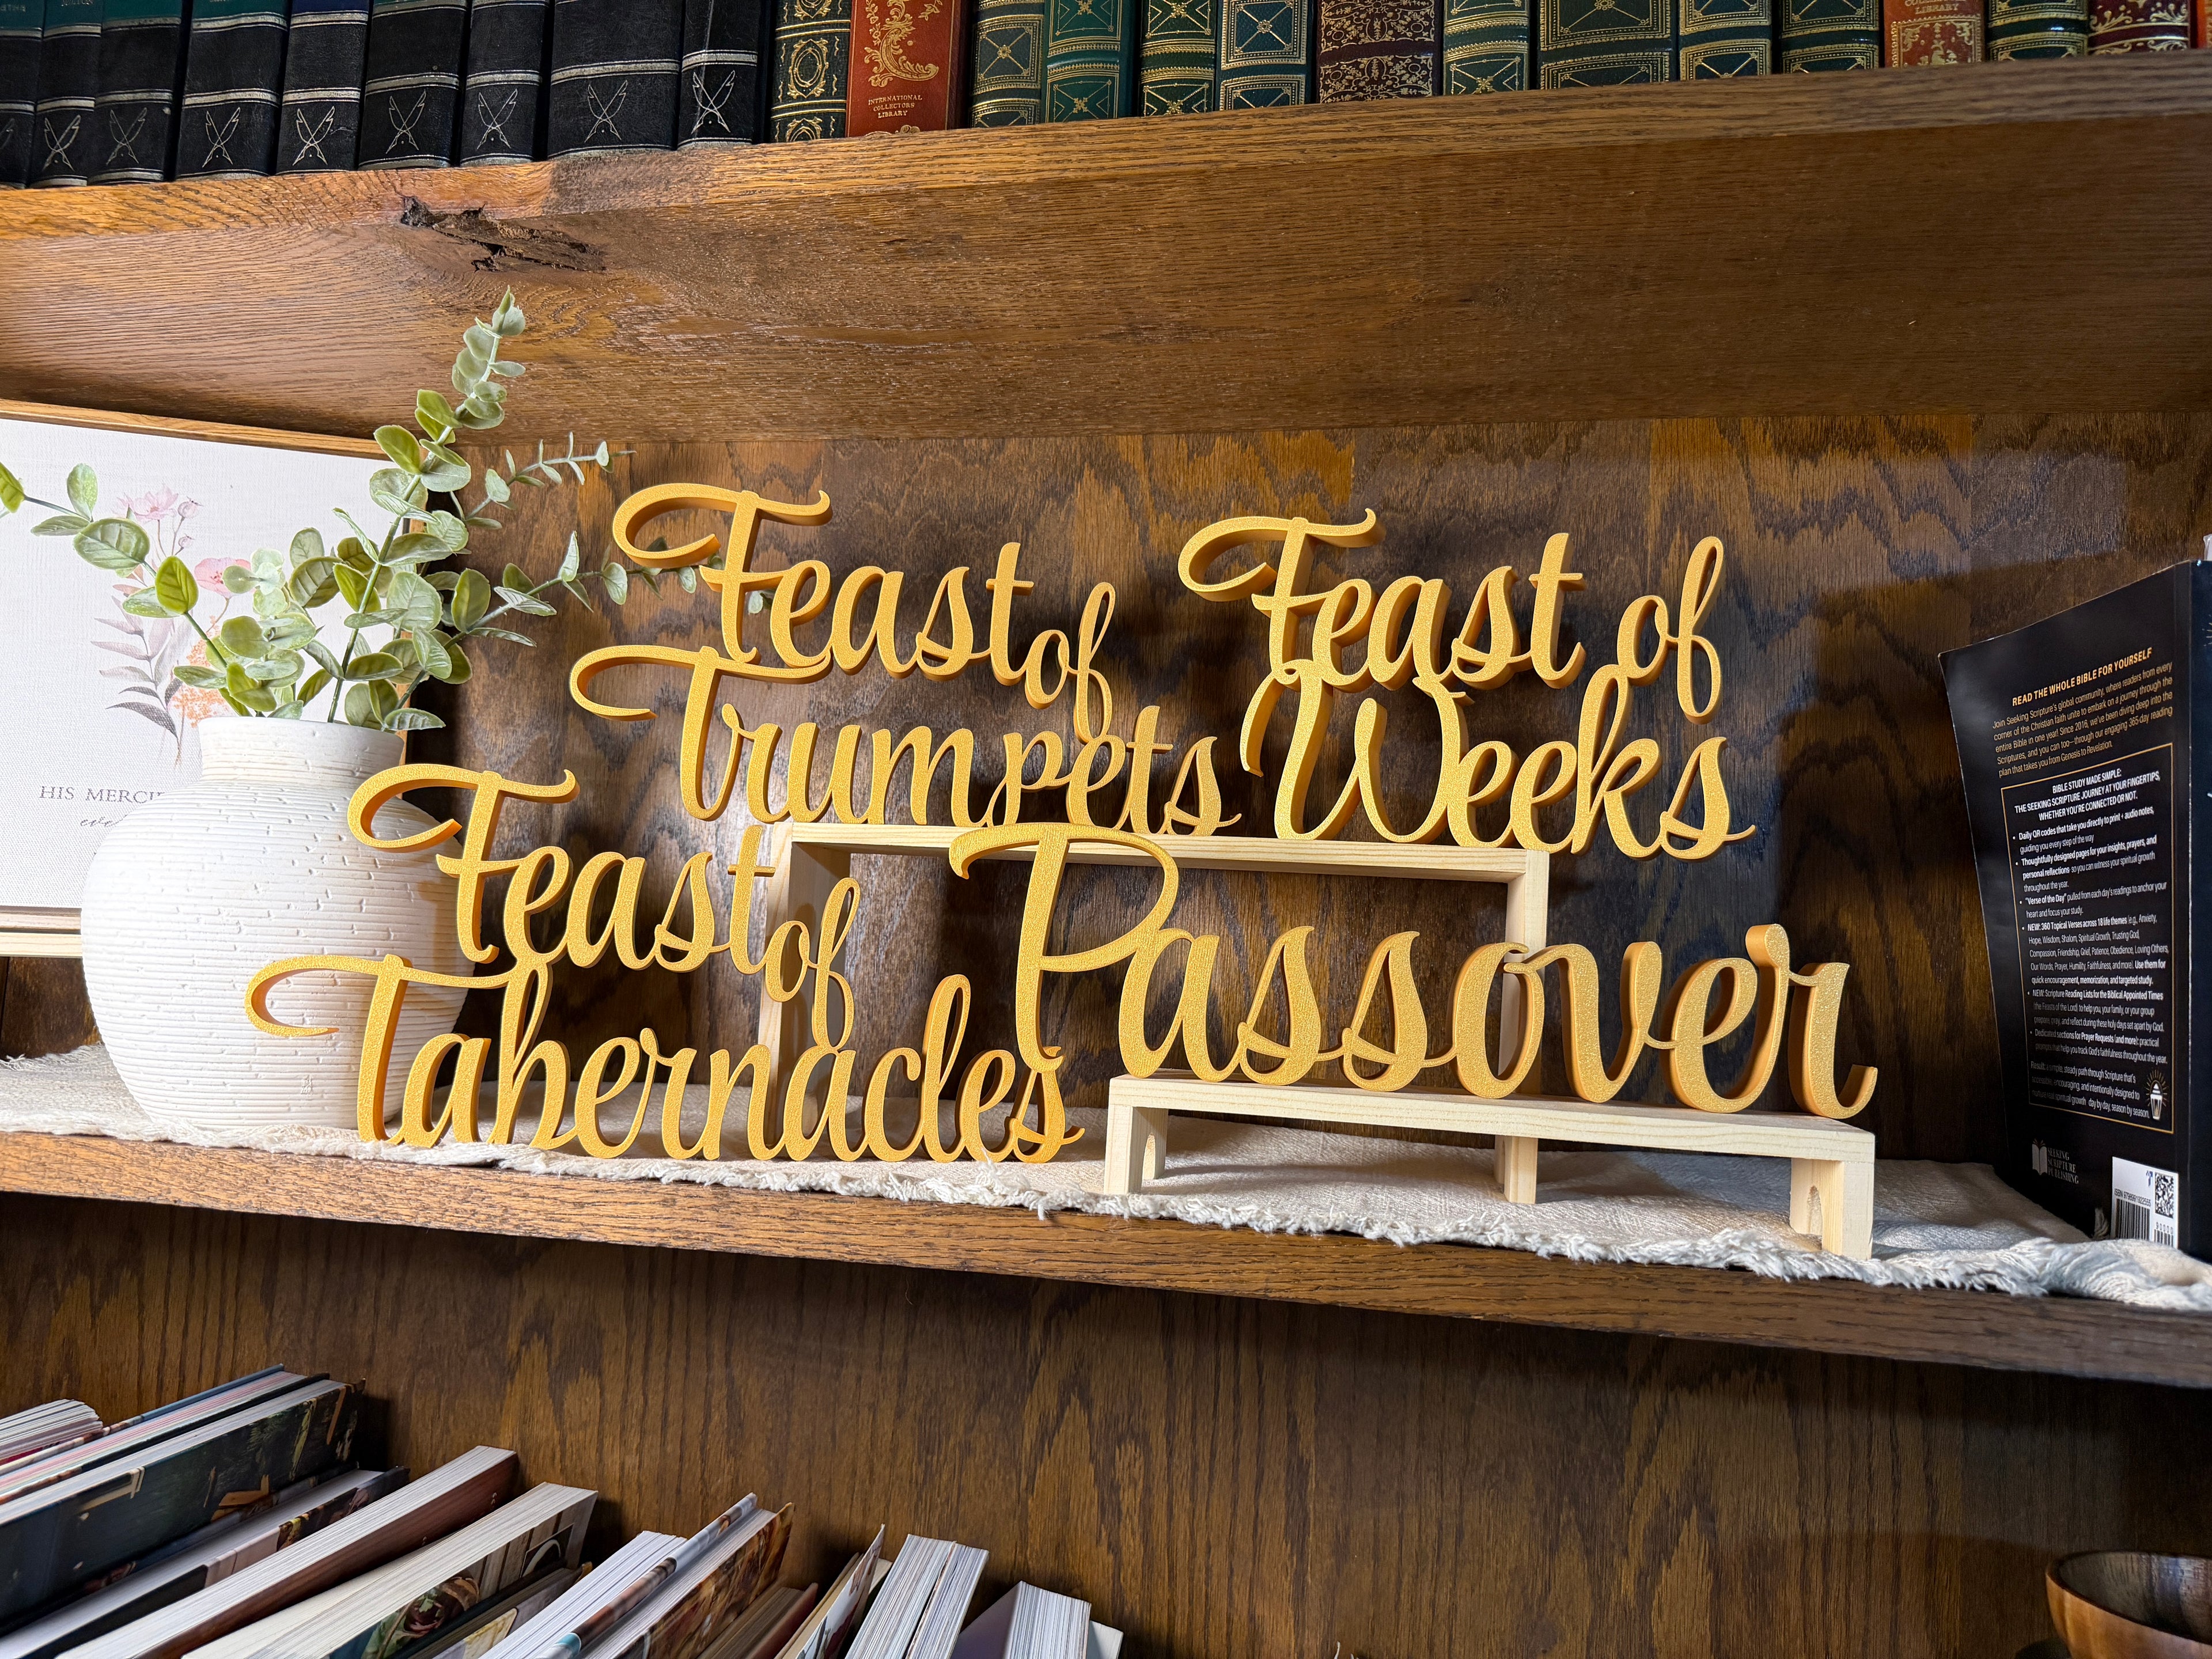 INTERNATIONAL
COLLECTORS
LIBRARY
COLLECTORS
LIBRARY
Feast of
Trumpets
Feast of
Weeks
Feast of
Tabernacles
Passover
HIS
READ THE WHOLE BIBLE FOR YOURSELF
Join Seeking Scripture's global community, where readers from every
corner of the Christian faith unite to embark on a journey through the
entire Bible in one year! Since 2018, we've been diving deep into the
Scriptures, and you can too—through our engaging 365-day reading
plan that takes you from Genesis to Revelation.
BIBLE STUDY MADE SIMPLE:
THE SEEKING SCRIPTURE JOURNEY AT YOUR FINGERTIPS,
WHETHER YOU'RE CONNECTED OR NOT.
• Daily QR codes that take you directly to print + audio notes,
guiding you every step of the way
• Thoughtfully designed pages for your insights, prayers, and
personal reflections so you can witness your spiritual growth
throughout the year.
• "Verse of the Day" pulled from each day's readings to anchor your
heart and focus your study.
• NEW: 360 Topical Verses across 18 life themes (e.g., Anxiety,
Hope, Wisdom, Shalom, Spiritual Growth, Trusting God,
Compassion, Friendship, Grief, Patience, Obedience, Loving Others,
Our Words, Prayer, Humility, Faithfulness, and more). Use them for
quick encouragement, memorization, and targeted study.
• NEW: Scripture Reading Lists for the Biblical Appointed Times
(the Feasts of the Lord) to help you, your family, or your group
prepare, pray, and reflect during these holy days set apart by God.
• Dedicated sections for Prayer Requests (and more): practical
prompts that help you track God's faithfulness throughout the year.
Result: a simple, steady path through Scripture that's
accessible, encouraging, and intentionally designed to
spiritual growth day by day, season by season.
SEEKING
SCRIPTURE
PUBLISHING